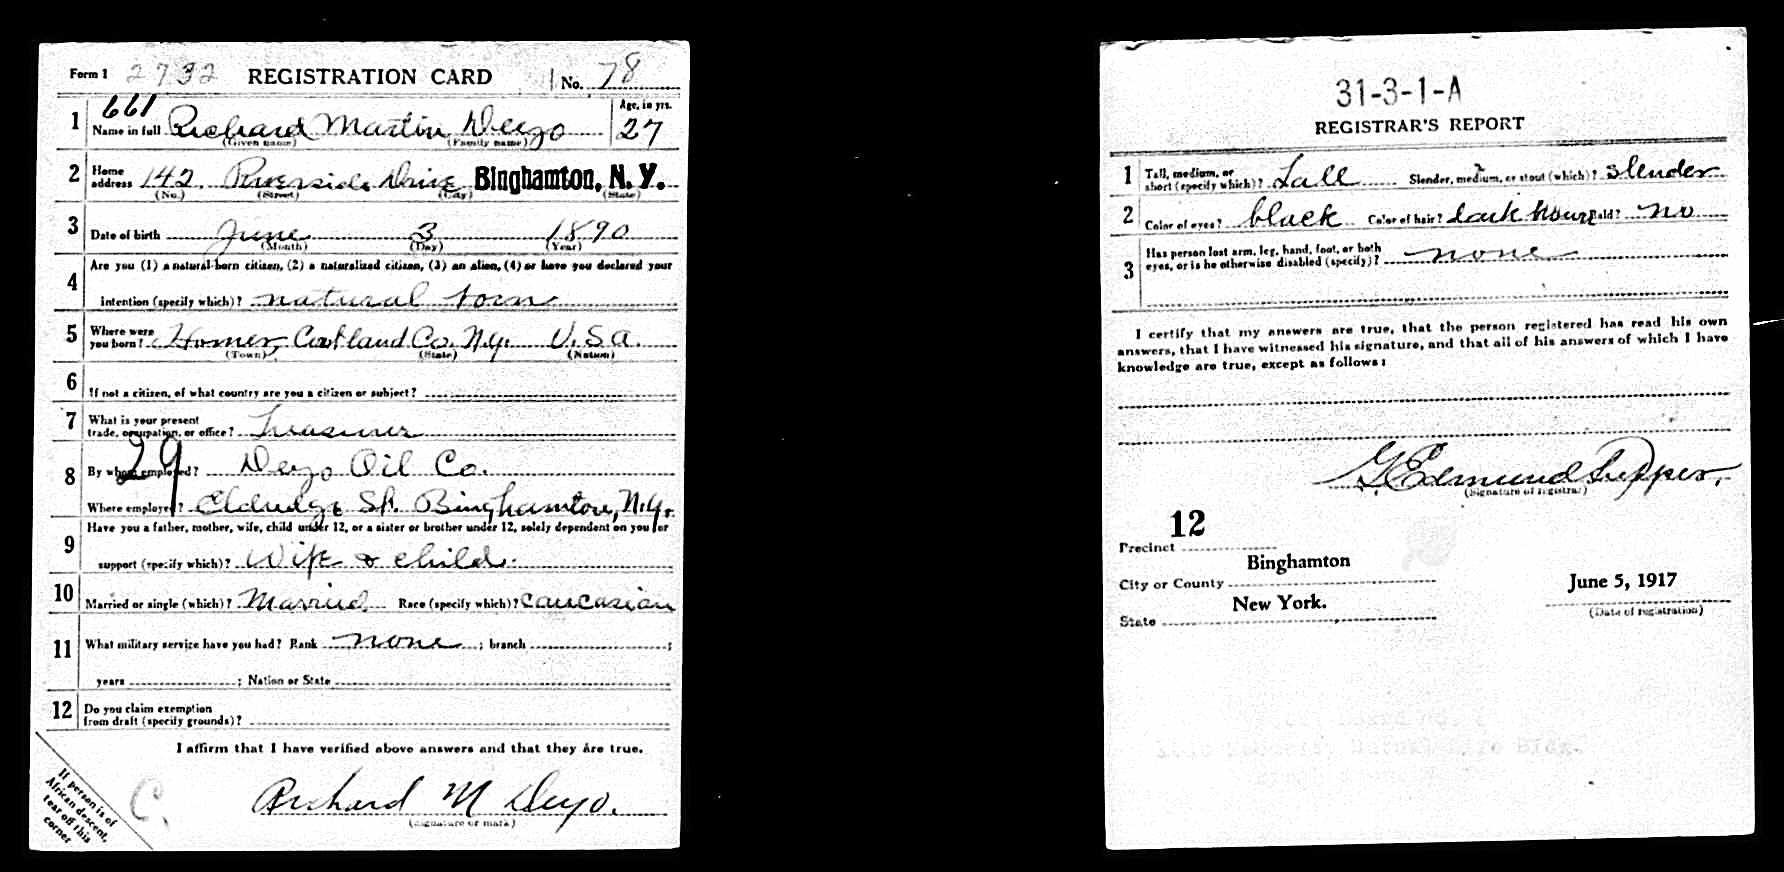 Form 1 2732 REGISTRATION CARD No. 78
661
1 Name in full Richard Martin Deyo Age, in yrs. 27
(Given name) (Family name)
2 Home address 142 Riverside Drive Binghamton, N.Y.
(No.) (Street) (City) (State)
3 Date of birth June 3 1890
(Month) (Day) (Year)
4 Are you (1) a natural-born citizen, (2) a naturalized citizen, (3) an alien, (4) or have you declared your
intention (specify which)? natural born
5 Where were you born? Homer, Cortland Co. N.Y. U.S.A.
(Town) (State) (Nation)
6 If not a citizen, of what country are you a citizen or subject?
7 What is your present trade, occupation, or office? Treasurer
29
8 By whom employed? Deyo Oil Co.
Where employed? Eldredge St. Binghamton, N.Y.
9 Have you a father, mother, wife, child under 12, or a sister or brother under 12, solely dependent on you for
support (specify which)? Wife & child.
10 Married or single (which)? Married Race (specify which)? Caucasian
11 What military service have you had? Rank none ; branch ;
years ; Nation or State
12 Do you claim exemption from draft (specify grounds)?
I affirm that I have verified above answers and that they are true.
Richard M Deyo.
(Signature or mark)
If person is of
African descent,
tear off this
corner
C
31-3-1-A
REGISTRAR'S REPORT
1 Tall, medium, or short (specify which)? Tall Slender, medium, or stout (which)? slender
2 Color of eyes? black Color of hair? dark brown Bald? no
3 Has person lost arm, leg, hand, foot, or both eyes, or is he otherwise disabled (specify)? none
I certify that my answers are true, that the person registered has read his own
answers, that I have witnessed his signature, and that all of his answers of which I have
knowledge are true, except as follows:
G. Edmund
(Signature of registrar)
Precinct 12
City or County Binghamton
State New York.
June 5, 1917
(Date of registration)